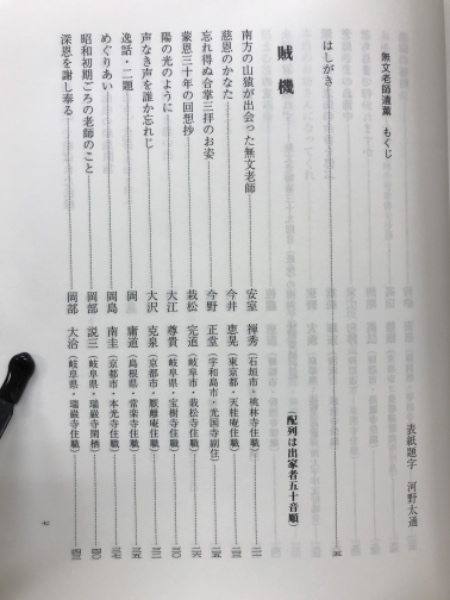 無文老師遺薫 もくじ
表紙題字 河野太通
はしがき 五
賊機
(配列は出家者五十音順)
南方の山猿が出会った無文老師 安室 禅秀(石垣市・桃林寺住職)
慈恩のかなた 今井 恵晃(東京都・天桂庵住職)
忘れ得ぬ合掌三拝のお姿 今野 正堂(宇和島市・光国寺副住)
蒙恩三十年の回想抄 栽松 完道(岐阜市・栽松寺住職)
陽の光のように 大江 尊貴(岐阜県・宝樹寺住職)
声なき声を誰か忘れじ 大沢 克泉(京都市・厭離庵住職)
逸話・二題 岡 庸道(島根県・常楽寺住職)
めぐりあい 岡島 南圭(京都市・本光寺住職)
昭和初期ごろの老師のこと 岡部 説三(岐阜県・瑞巌寺閑栖)
深恩を謝し奉る 岡部 大治(岐阜県・瑞巌寺住職)
七